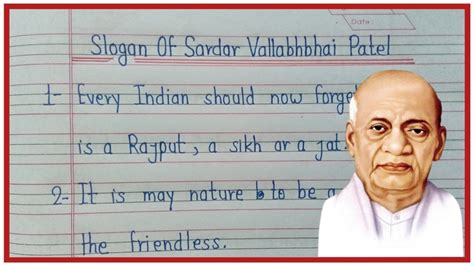 Date:
Slogan Of Sardar Vallabhbhai Patel
1- Every Indian should now forge
is a Rajput, a sikh or a jat
2- It is may nature to be a
the friendless.